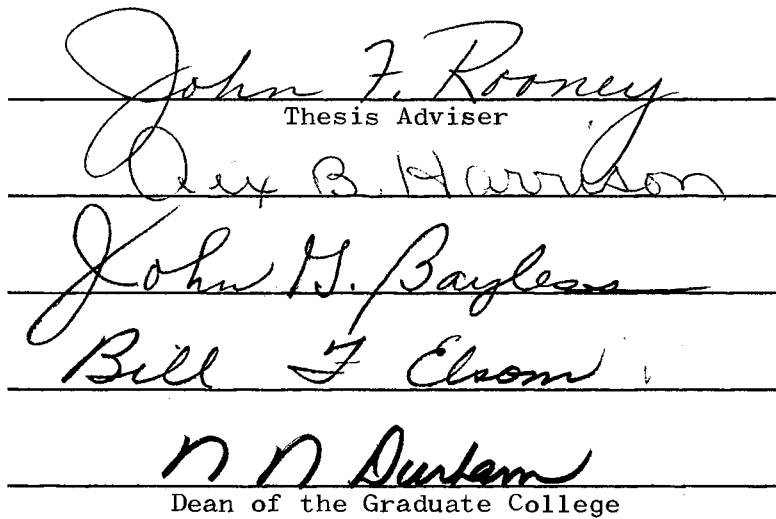 John F. Rooney
Thesis Adviser
Rex B. Harrison
John G. Bayless
Bill F Elsom
N N Durham
Dean of the Graduate College